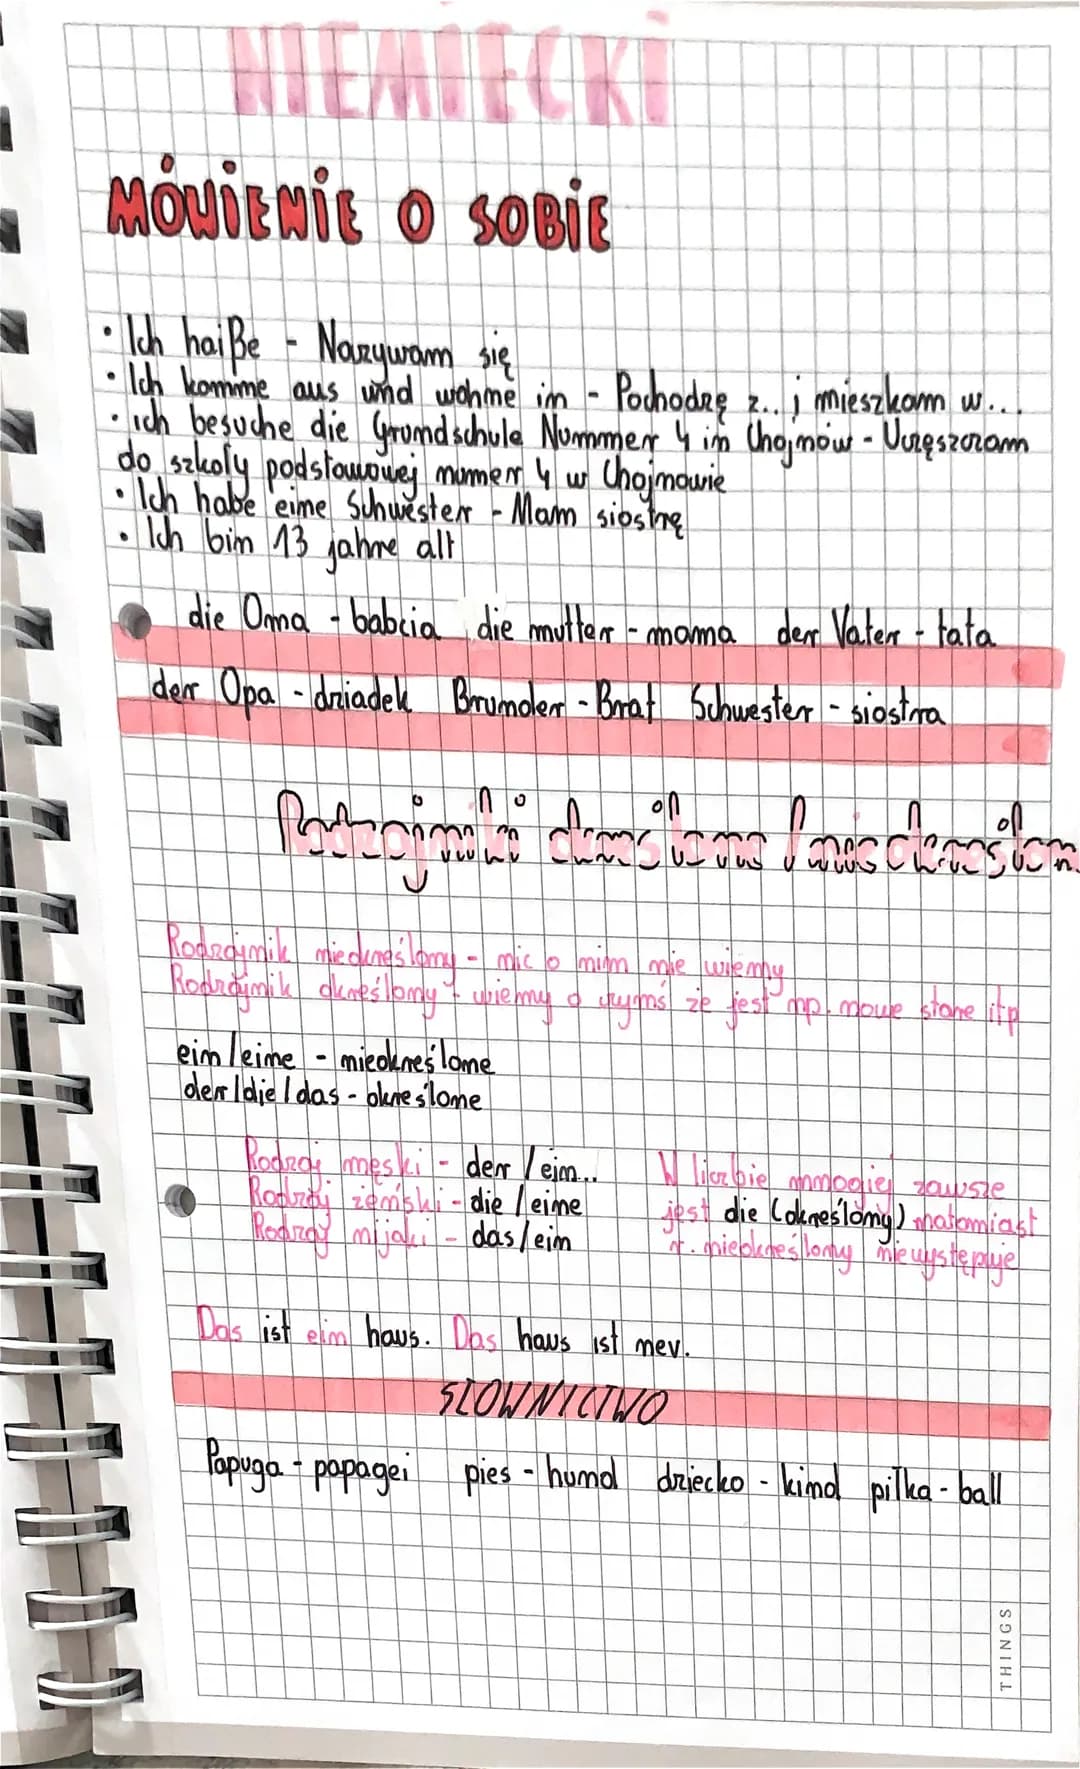 NIEMIECKI
MÓWIENIE O SOBIE
• Ich haiße - Nazywam się
• Ich komme aus und wohne im - Pochodzę z.. i mieszkam w...
• ich besuche die Grundschule Nummer 4 in Chojnów - Uczęszczam
do szkoły podstawowej numer 4 w Chojnowie
• Ich habe eine Schwester - Mam siostrę
• Ich bin 13 jahre alt
die Oma - babcia die mutter - mama der Vater - tata
der Opa - dziadek Brumder - Brat Schwester - siostra
Rodzajniki określone / nieokreślon.
Rodzajnik nieokreślony - nic o nim nie wiemy
Rodzajnik określony - wiemy o czymś że jest np. nowe stare itp
ein/eine - nieokreślone
der/die/das - okreslone
Rodzaj męski - der / ein.. W liczbie mnogiej zawsze
Rodzaj żeński - die / eine jest die (określony) natomiast
Rodzaj nijaki - das/ein r. nieokreślony nie występuje
Das ist ein haus. Das haus ist neu.
SŁOWNICTWO
Papuga - papagei pies - hund dziecko - kind piłka - ball
THINGS